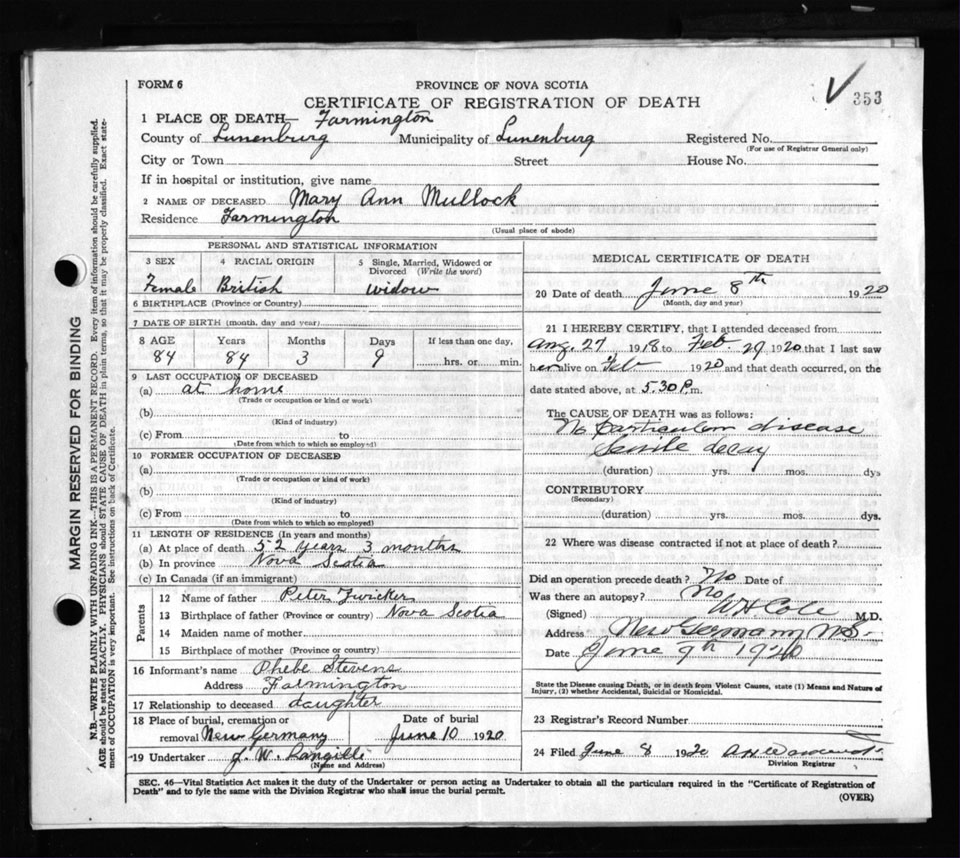 FORM 6
PROVINCE OF NOVA SCOTIA
CERTIFICATE OF REGISTRATION OF DEATH
353
1 PLACE OF DEATH— Farmington
County of Lunenburg Municipality of Lunenburg Registered No.
(For use of Registrar General only)
City or Town Street House No.
If in hospital or institution, give name
2 NAME OF DECEASED Mary Ann Mullock
Residence Farmington
(Usual place of abode)
PERSONAL AND STATISTICAL INFORMATION
3 SEX 4 RACIAL ORIGIN 5 Single, Married, Widowed or Divorced (Write the word)
Female British widow
6 BIRTHPLACE (Province or Country)
7 DATE OF BIRTH (month, day and year)
8 AGE Years Months Days If less than one day,
84 84 3 9 hrs. or min.
9 LAST OCCUPATION OF DECEASED
(a) at home
(Trade or occupation or kind of work)
(b)
(Kind of industry)
(c) From to
(Date from which to which so employed)
10 FORMER OCCUPATION OF DECEASED
(a)
(Trade or occupation or kind of work)
(b)
(Kind of industry)
(c) From to
(Date from which to which so employed)
11 LENGTH OF RESIDENCE (In years and months)
(a) At place of death 52 years 3 months
(b) In province Nova Scotia
(c) In Canada (if an immigrant)
Parents
12 Name of father Peter Zwicker
13 Birthplace of father (Province or country) Nova Scotia
14 Maiden name of mother
15 Birthplace of mother (Province or country)
16 Informant's name Phebe Stevens
Address Farmington
17 Relationship to deceased daughter
18 Place of burial, cremation or Date of burial
removal New Germany June 10 1920
19 Undertaker J. W. Langille
(Name and Address)
MEDICAL CERTIFICATE OF DEATH
20 Date of death June 8th 1920
(Month, day and year)
21 I HEREBY CERTIFY, that I attended deceased from
Aug. 27 1918 to Feb. 29 1920 that I last saw
her alive on Feb 1920 and that death occurred, on the
date stated above, at 5.30 P.m.
The CAUSE OF DEATH was as follows:
No particular disease
Senile decay
(duration) yrs. mos. dys
CONTRIBUTORY
(Secondary)
(duration) yrs. mos. dys.
22 Where was disease contracted if not at place of death?
Did an operation precede death? No Date of
Was there an autopsy? No
(Signed) W H Cole M.D.
Address New Germany N.S.
Date June 9th 1920
State the Disease causing Death, or in death from Violent Causes, state (1) Means and Nature of
Injury, (2) whether Accidental, Suicidal or Homicidal.
23 Registrar's Record Number
24 Filed June 8 1920
Division Registrar
SEC. 46—Vital Statistics Act makes it the duty of the Undertaker or person acting as Undertaker to obtain all the particulars required in the "Certificate of Registration of
Death" and to fyle the same with the Division Registrar who shall issue the burial permit.
(OVER)
MARGIN RESERVED FOR BINDING
N.B.—WRITE PLAINLY WITH UNFADING INK—THIS IS A PERMANENT RECORD. Every item of information should be carefully supplied.
AGE should be stated EXACTLY. PHYSICIANS should STATE CAUSE OF DEATH in plain terms, so that it may be properly classified. Exact state-
ment of OCCUPATION is very important. See instructions on back of Certificate.